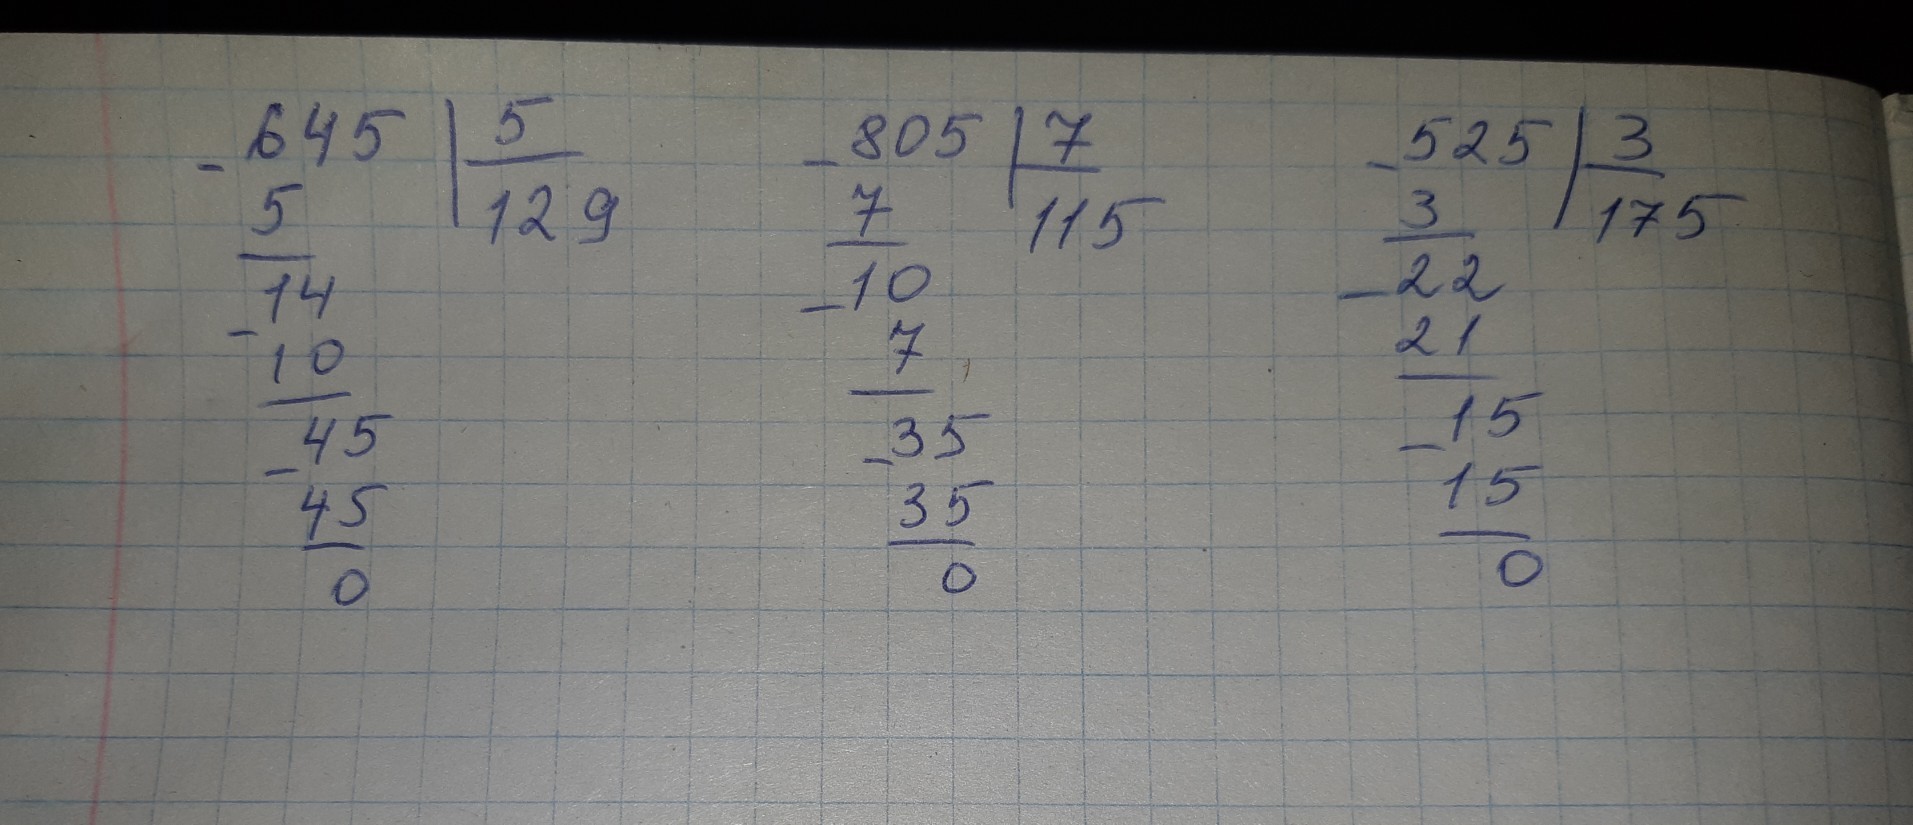 -645 | 5
5
129
14
-
10
45
-
45
0
-805 | 7
7
115
-10
7
-35
35
0
-525 | 3
3
175
-22
21
15
-
15
0